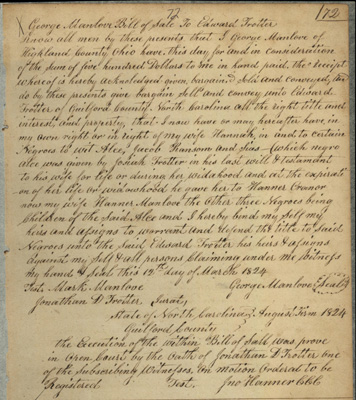 72
172
George Manlove Bill of Sale To Edward Trotter
Know all men by these presents that I George Manlove of
Highland County Ohio have this day for and in consideration
of the sum of five hundred Dollars to me in hand paid, the receipt
whereof is hereby acknoledged given bargain.d Sold and conveyed, and
do by these presents give bargain sell and convey unto Edward
Trotter of Guilford County North Carolina all the right title and
interest and property that I now have or may hereafter have in
my own right or in right of my wife Hannah, in and to certain
Negroes to wit Alee, Jacob Ransom and Silas (which negro
Alee was given by Josiah Trotter in his last will & testament
to his wife for life or during her widohood and at the expirati
on of her life or widowhood he gave her to Hanner Cranor
now my wife Hanner Manlove the other three Negroes being
Children of the Said Alee and I hereby bind my self my
heirs and assigns to warrant and defend the title to said
Negroes unto the Said Edward Trotter his heirs & assigns
against my Self & all persons claiming under me Witness
my hand & Seal this 12th day of March 1824
Test. Mark Manlove George Manlove Seal
Jonathan D Trotter Jurat
State of North Carolina August Term 1824
Guilford County
the Execution of the within Bill of Sale was prove
in Open Court by the Oath of Jonathan D Trotter one
of the Subscribing Witnesses, on motion Ordered to be
Registered Test. Jno Hanner CClk